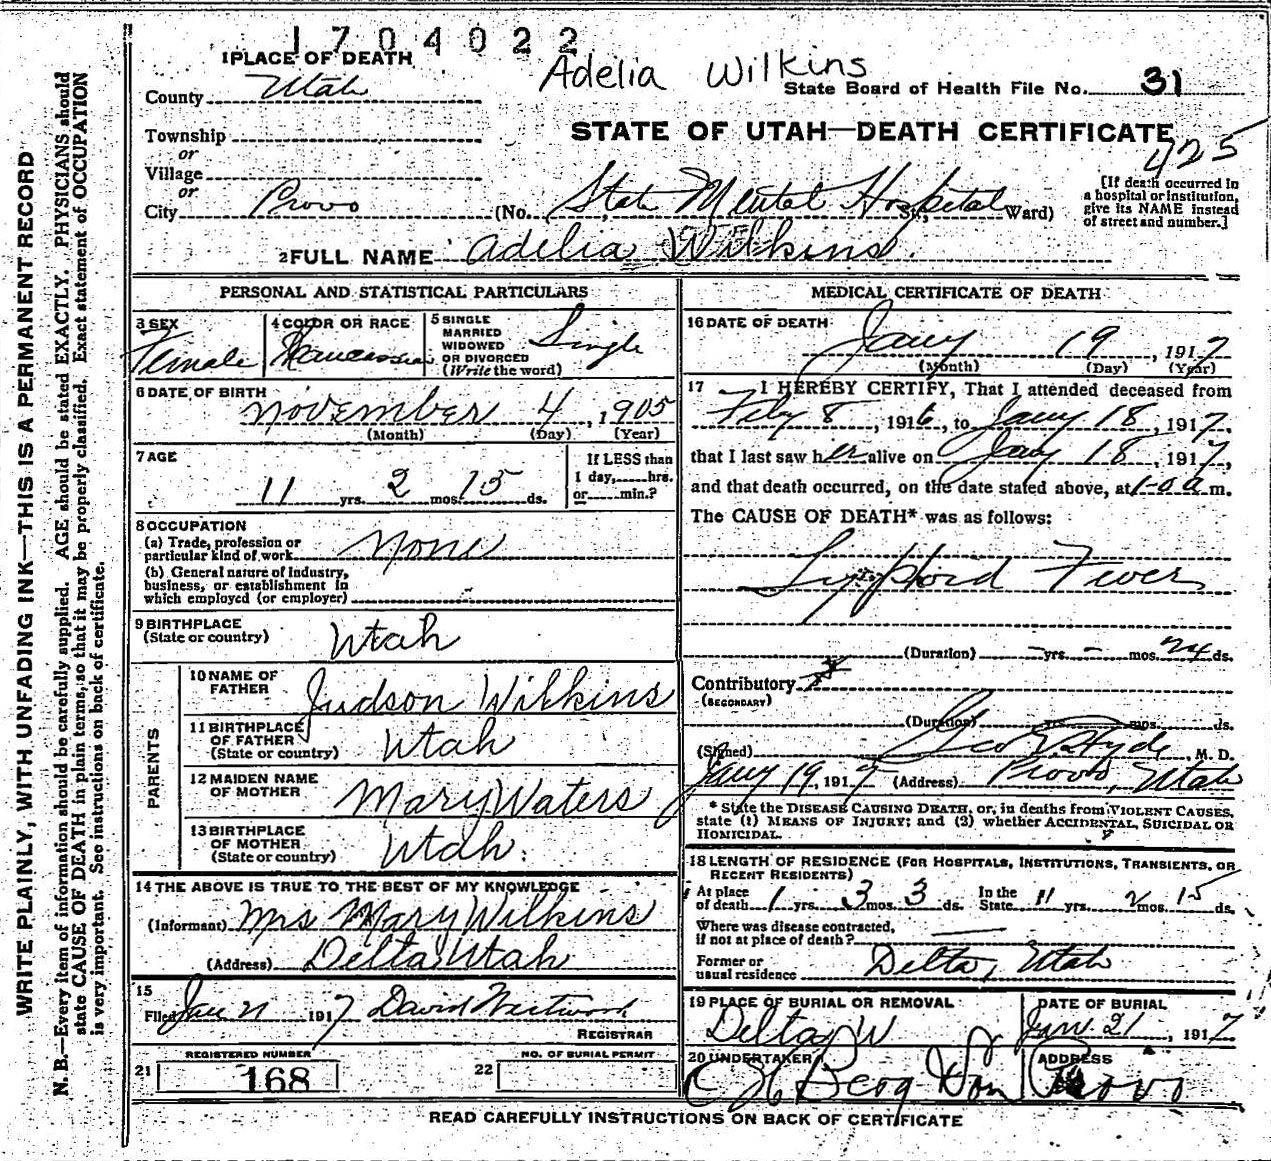 1704022
Adelia Wilkins
1 PLACE OF DEATH
County Utah
State Board of Health File No. 31
STATE OF UTAH—DEATH CERTIFICATE
425
Township
or
Village
or
City Provo (No. State Mental Hospital St., Ward)
[If death occurred in a hospital or institution, give its NAME instead of street and number.]
2 FULL NAME Adelia Wilkins.
PERSONAL AND STATISTICAL PARTICULARS
3 SEX Female
4 COLOR OR RACE
5 SINGLE MARRIED WIDOWED OR DIVORCED (Write the word) Single
6 DATE OF BIRTH
November 4, 1905
(Month) (Day) (Year)
7 AGE
11 yrs. 2 mos. 15 ds.
If LESS than 1 day, hrs. or min.?
8 OCCUPATION
(a) Trade, profession or particular kind of work None
(b) General nature of Industry, business, or establishment in which employed (or employer)
9 BIRTHPLACE
(State or country) Utah
PARENTS
10 NAME OF FATHER Judson Wilkins
11 BIRTHPLACE OF FATHER (State or country) Utah
12 MAIDEN NAME OF MOTHER Mary Waters
13 BIRTHPLACE OF MOTHER (State or country) Utah.
14 THE ABOVE IS TRUE TO THE BEST OF MY KNOWLEDGE
(Informant) Mrs Mary Wilkins
(Address) Delta, Utah
15
Filed Jan 21 1917 David Westwood
REGISTRAR
REGISTERED NUMBER
21 168
NO. OF BURIAL PERMIT
22
MEDICAL CERTIFICATE OF DEATH
16 DATE OF DEATH
Jany 19, 1917
(Month) (Day) (Year)
17 I HEREBY CERTIFY, That I attended deceased from
Feby 8, 1916, to Jany 18, 1917,
that I last saw her alive on Jany 18, 1917,
and that death occurred, on the date stated above, at 1-0 a m.
The CAUSE OF DEATH* was as follows:
Typhoid Fever
(Duration) - yrs. - mos. 24 ds.
Contributory
(SECONDARY)
(Duration) yrs. mos. ds.
(Signed) Geo E. Hyde, M. D.
Jany 19, 1917 (Address) Provo, Utah
* State the DISEASE CAUSING DEATH, or, in deaths from VIOLENT CAUSES, state (1) MEANS OF INJURY; and (2) whether ACCIDENTAL, SUICIDAL OR HOMICIDAL.
18 LENGTH OF RESIDENCE (FOR HOSPITALS, INSTITUTIONS, TRANSIENTS, OR RECENT RESIDENTS)
At place of death 1 yrs. 3 mos. 3 ds. In the State 11 yrs. 2 mos. 15 ds.
Where was disease contracted, if not at place of death?
Former or usual residence Delta, Utah
19 PLACE OF BURIAL OR REMOVAL Delta
DATE OF BURIAL Jan. 21, 1917
20 UNDERTAKER
ADDRESS Provo
READ CAREFULLY INSTRUCTIONS ON BACK OF CERTIFICATE
WRITE PLAINLY, WITH UNFADING INK—THIS IS A PERMANENT RECORD
N. B.—Every item of information should be carefully supplied. AGE should be stated EXACTLY. PHYSICIANS should
state CAUSE OF DEATH in plain terms, so that it may be properly classified. Exact statement of OCCUPATION
is very important. See instructions on back of certificate.